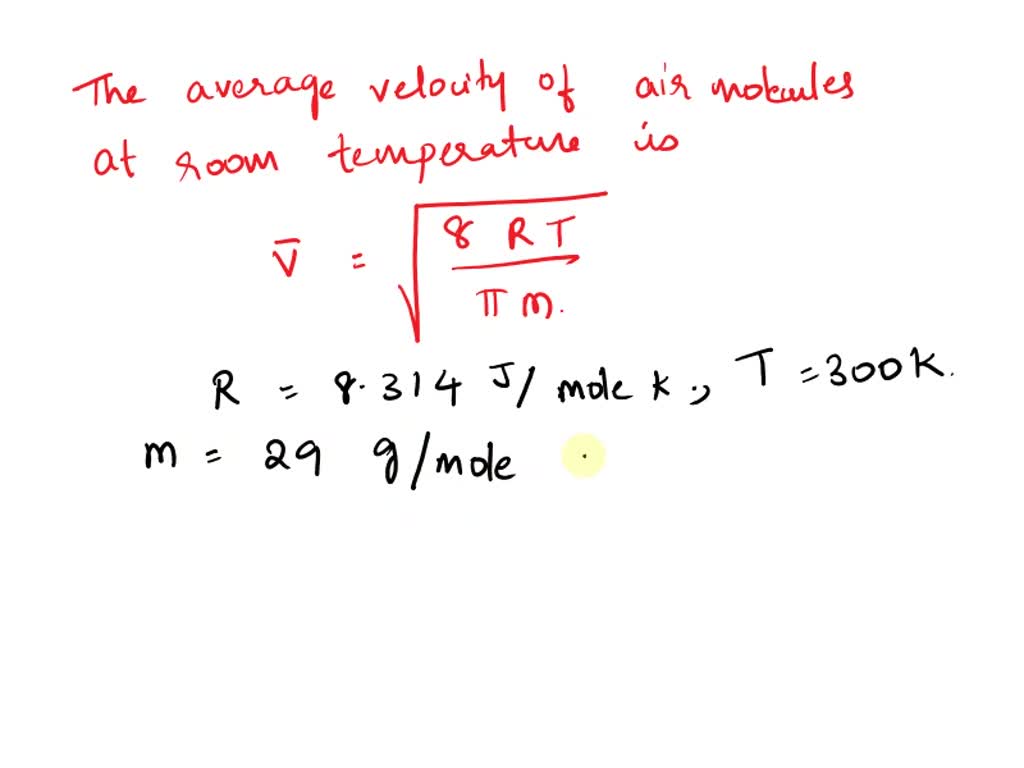 The average velocity of air molecules
at room temperature is
v̄ = √(8 R T / π m.)
R = 8.314 J/mole K ., T = 300K.
m = 29 g/mole